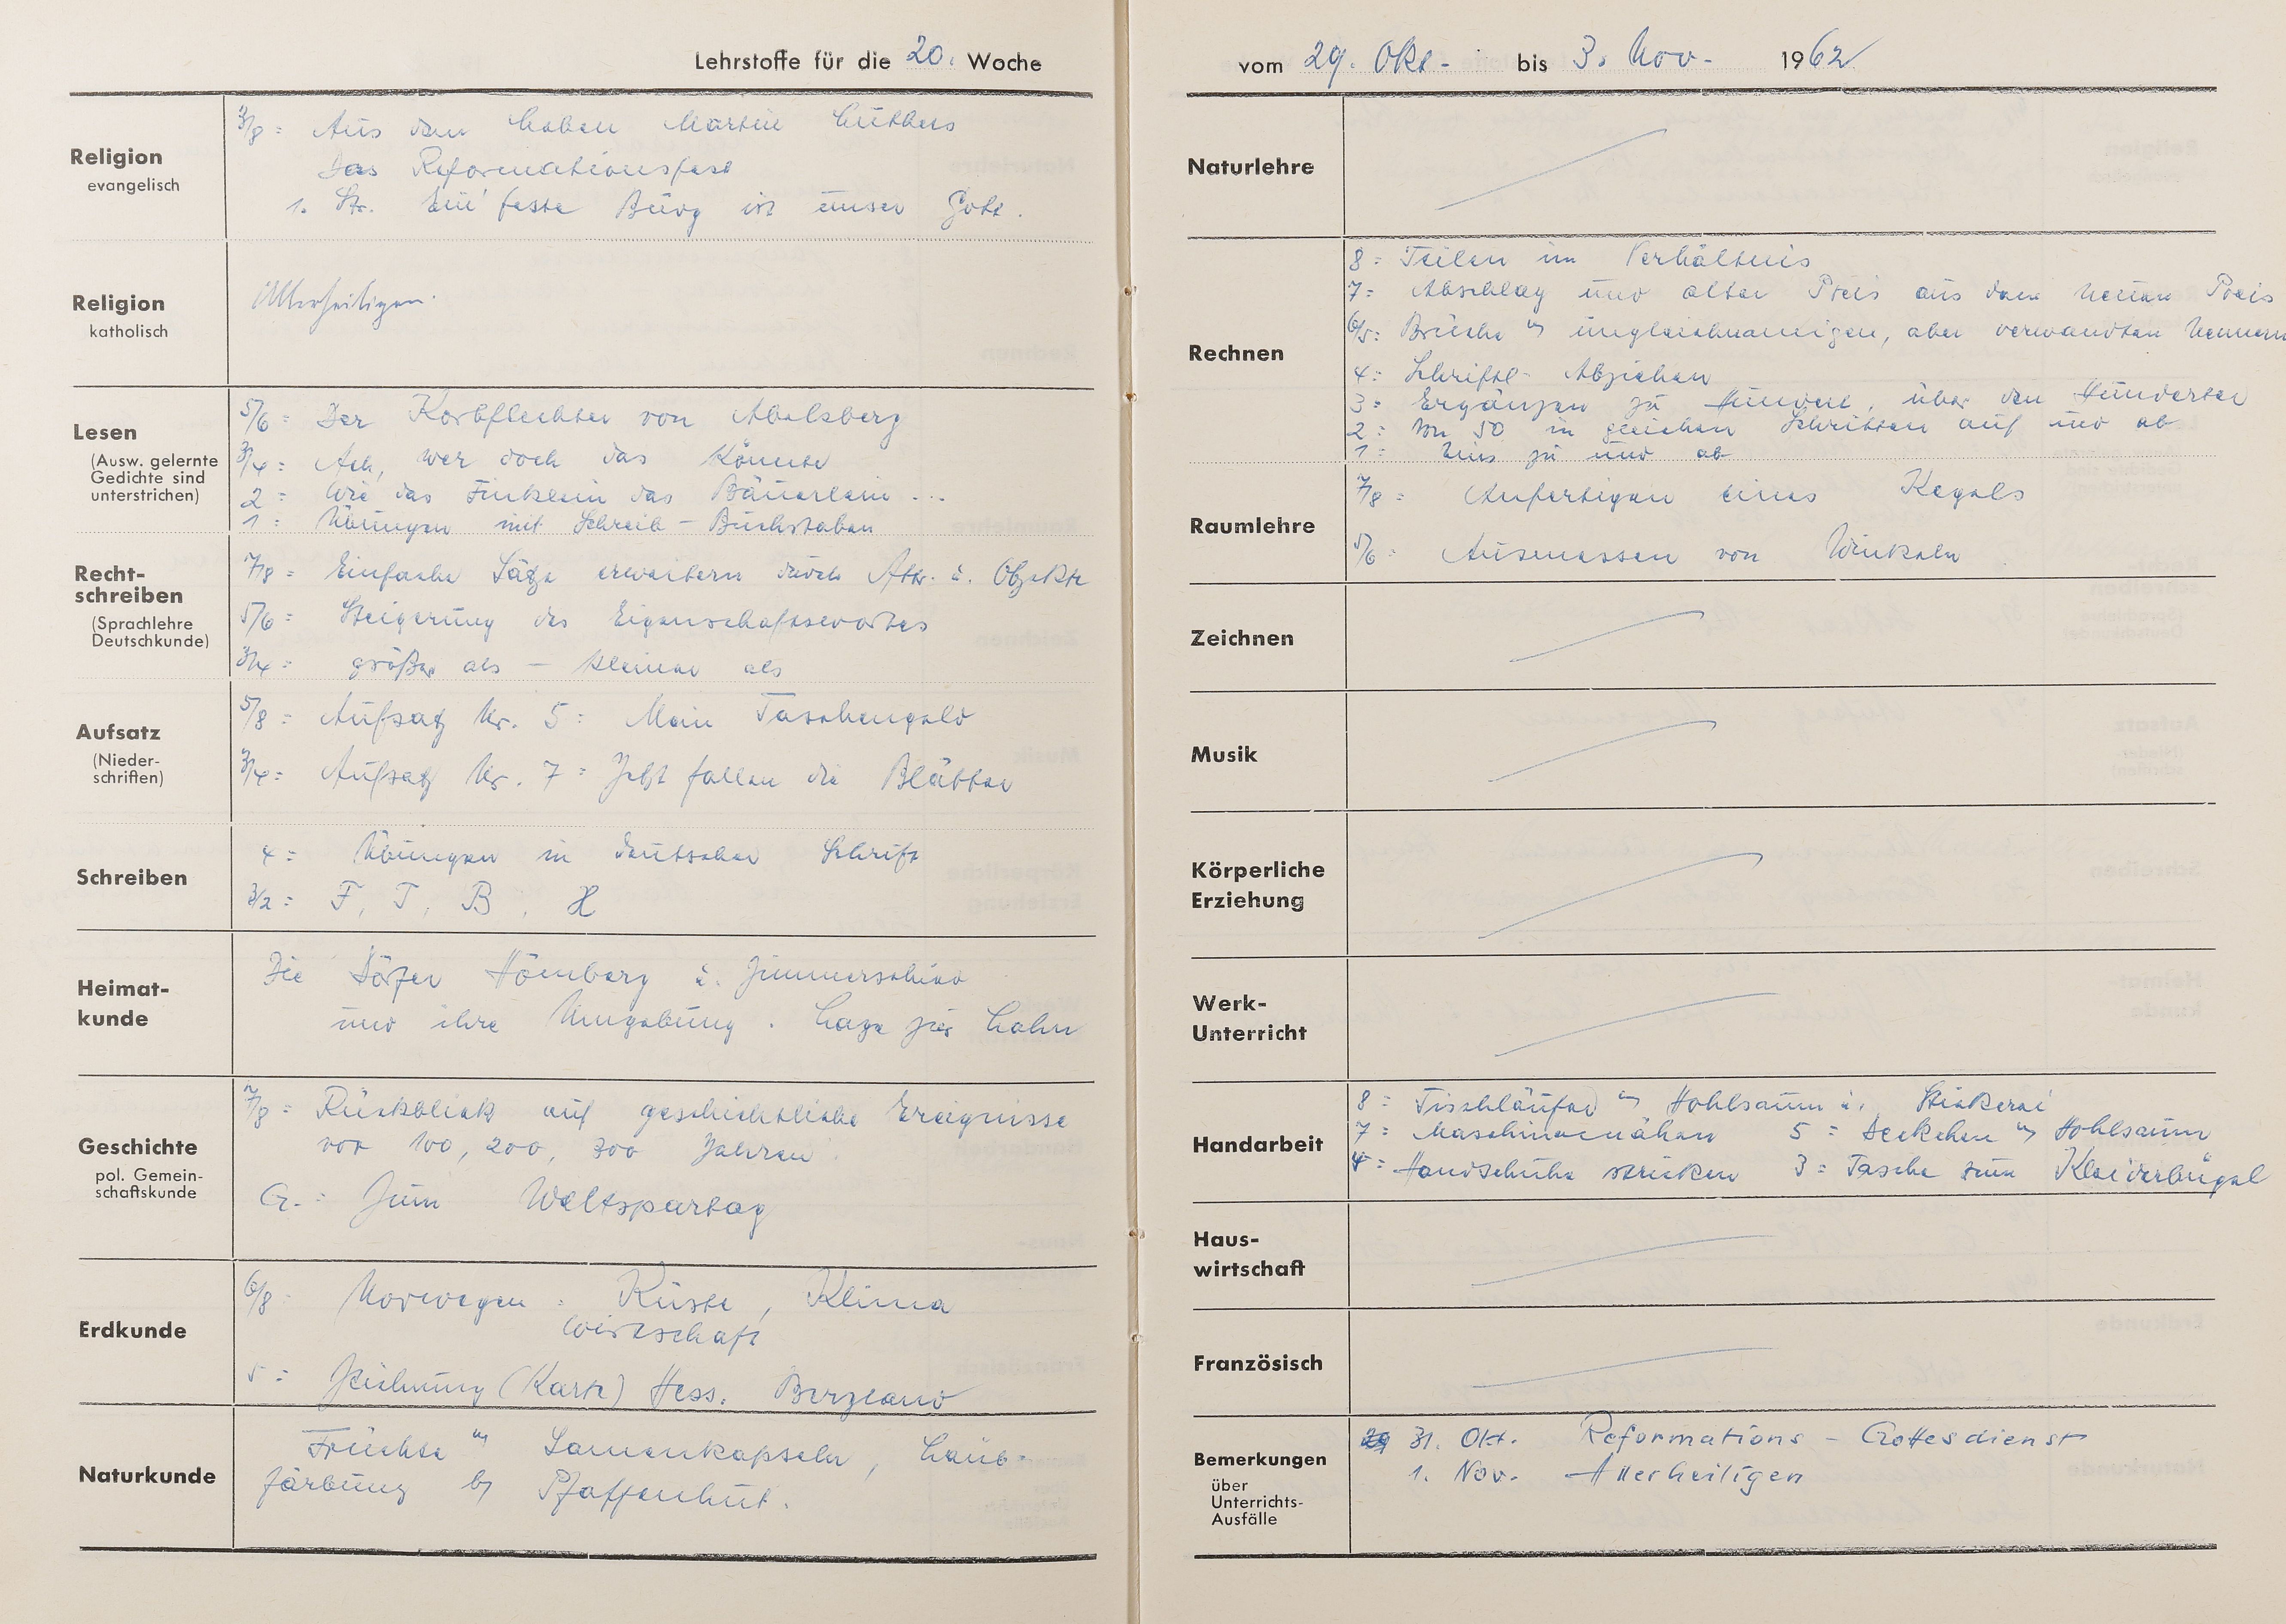 Lehrstoffe für die 20. Woche
Religion
evangelisch
7/8 = Aus dem Leben Martin Luthers
Das Reformationsfest
1. Str. Ein' feste Burg ist unser Gott.
Religion
katholisch
Allerheiligen.
Lesen
(Ausw. gelernte
Gedichte sind
unterstrichen)
5/6 = Der Korbflechter von Abelsberg
3/4 = Ach, wer doch das könnte
2 = Wie das Finklein das Bäuerlein ...
1 = Übungen mit Schreib - Buchstaben
Recht-
schreiben
(Sprachlehre
Deutschkunde)
7/8 = Einfache Sätze erweitern durch Attr. u. Objekte
5/6 = Steigerung des Eigenschaftswortes
3/4 = größer als - kleiner als
Aufsatz
(Nieder-
schriften)
5/8 = Aufsatz Nr. 5 = Mein Taschengeld
3/4 = Aufsatz Nr. 7 = Jetzt fallen die Blätter
Schreiben
4 = Übungen in deutscher Schrift
3/2 = F, T, B, H
Heimat-
kunde
Die Dörfer Hömberg u. Zimmerschied
und ihre Umgebung. Lage zur Lahn
Geschichte
pol. Gemein-
schaftskunde
7/8 = Rückblick auf geschichtliche Ereignisse
vor 100, 200, 300 Jahren.
G. = Zum Weltspartag
Erdkunde
6/8 = Norwegen = Küste, Klima
Wirtschaft
5 = Zeichnung (Karte) Hess. Bergland
Naturkunde
Früchte m Samenkapseln, Laub-
färbung b Pfaffenhut.
vom 29. Okt. - bis 3. Nov. - 1962
Naturlehre
Rechnen
8 = Teilen im Verhältnis
7 = Abschlag und alter Preis aus dem neuen Preis
6/5 = Brüche m ungleichnamigen, aber verwandten Nennern
4 = Schriftl. Abziehen
3 = Ergänzen zu Hundert, über den Hunderter
2 = Von 50 in gleichen Schritten auf und ab
1 = Eins zu und ab
Raumlehre
7/8 = Anfertigen eines Kegels
5/6 = Ausmessen von Winkeln
Zeichnen
Musik
Körperliche
Erziehung
Werk-
Unterricht
Handarbeit
8 = Tischläufer m Hohlsaum u. Stickerei
7 = Maschinennähen 5 = Deckchen m Hohlsaum
4 = Handschuhe stricken 3 = Tasche zum Kleiderbügel
Haus-
wirtschaft
Französisch
Bemerkungen
über
Unterrichts-
Ausfälle
31. Okt. Reformations - Gottesdienst
1. Nov. Allerheiligen